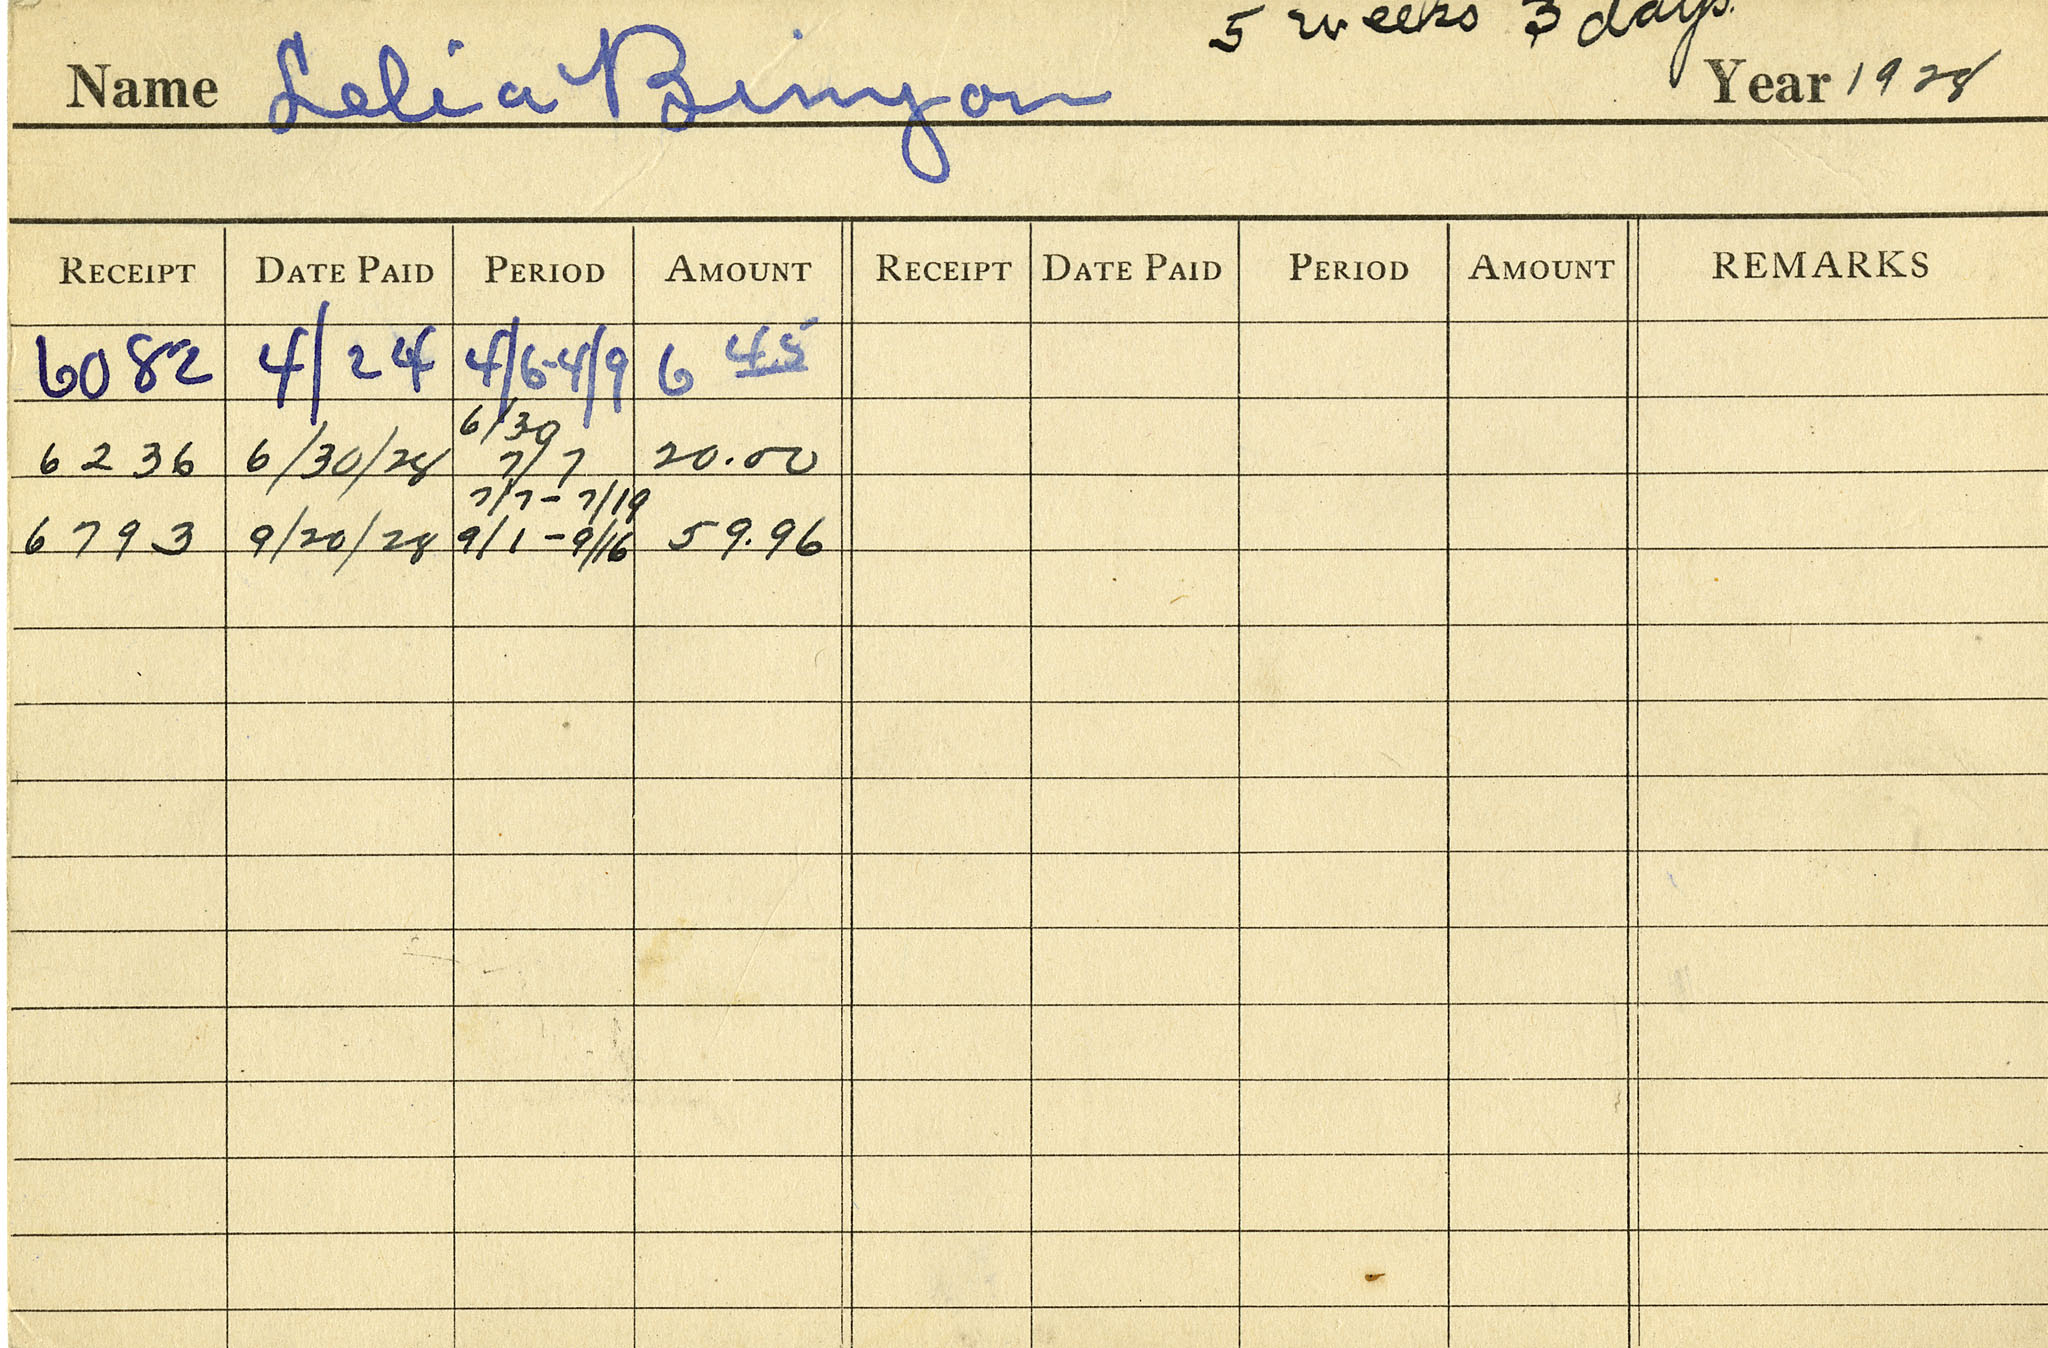 5 weeks 3 days.
Name Lelia Binyon Year 1928
RECEIPT DATE PAID PERIOD AMOUNT RECEIPT DATE PAID PERIOD AMOUNT REMARKS
6082 4/24 4/6-4/9 6 45
6/30
6236 6/30/28 7/7 20.00
7/7-7/19
6793 9/20/28 9/1-9/16 59.96